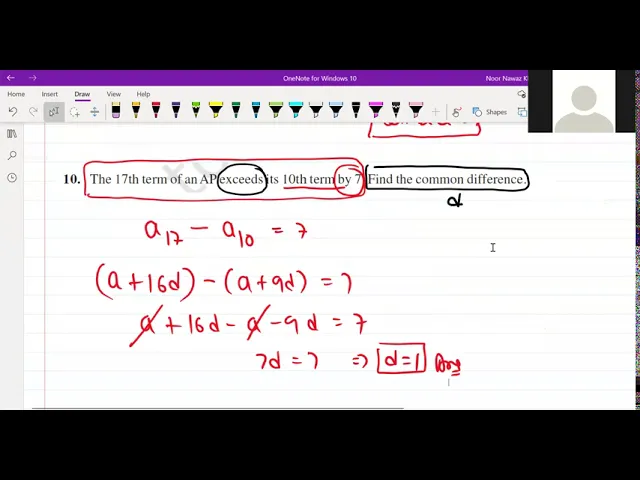 OneNote for Windows 10
Noor Nawaz K
Home Insert Draw View Help
10. The 17th term of an AP exceeds its 10th term by 7. Find the common difference.
d
a₁₇ − a₁₀ = 7
(a + 16d) − (a + 9d) = 7
a + 16d − a − 9d = 7
7d = 7 ⇒ d = 1 Ans